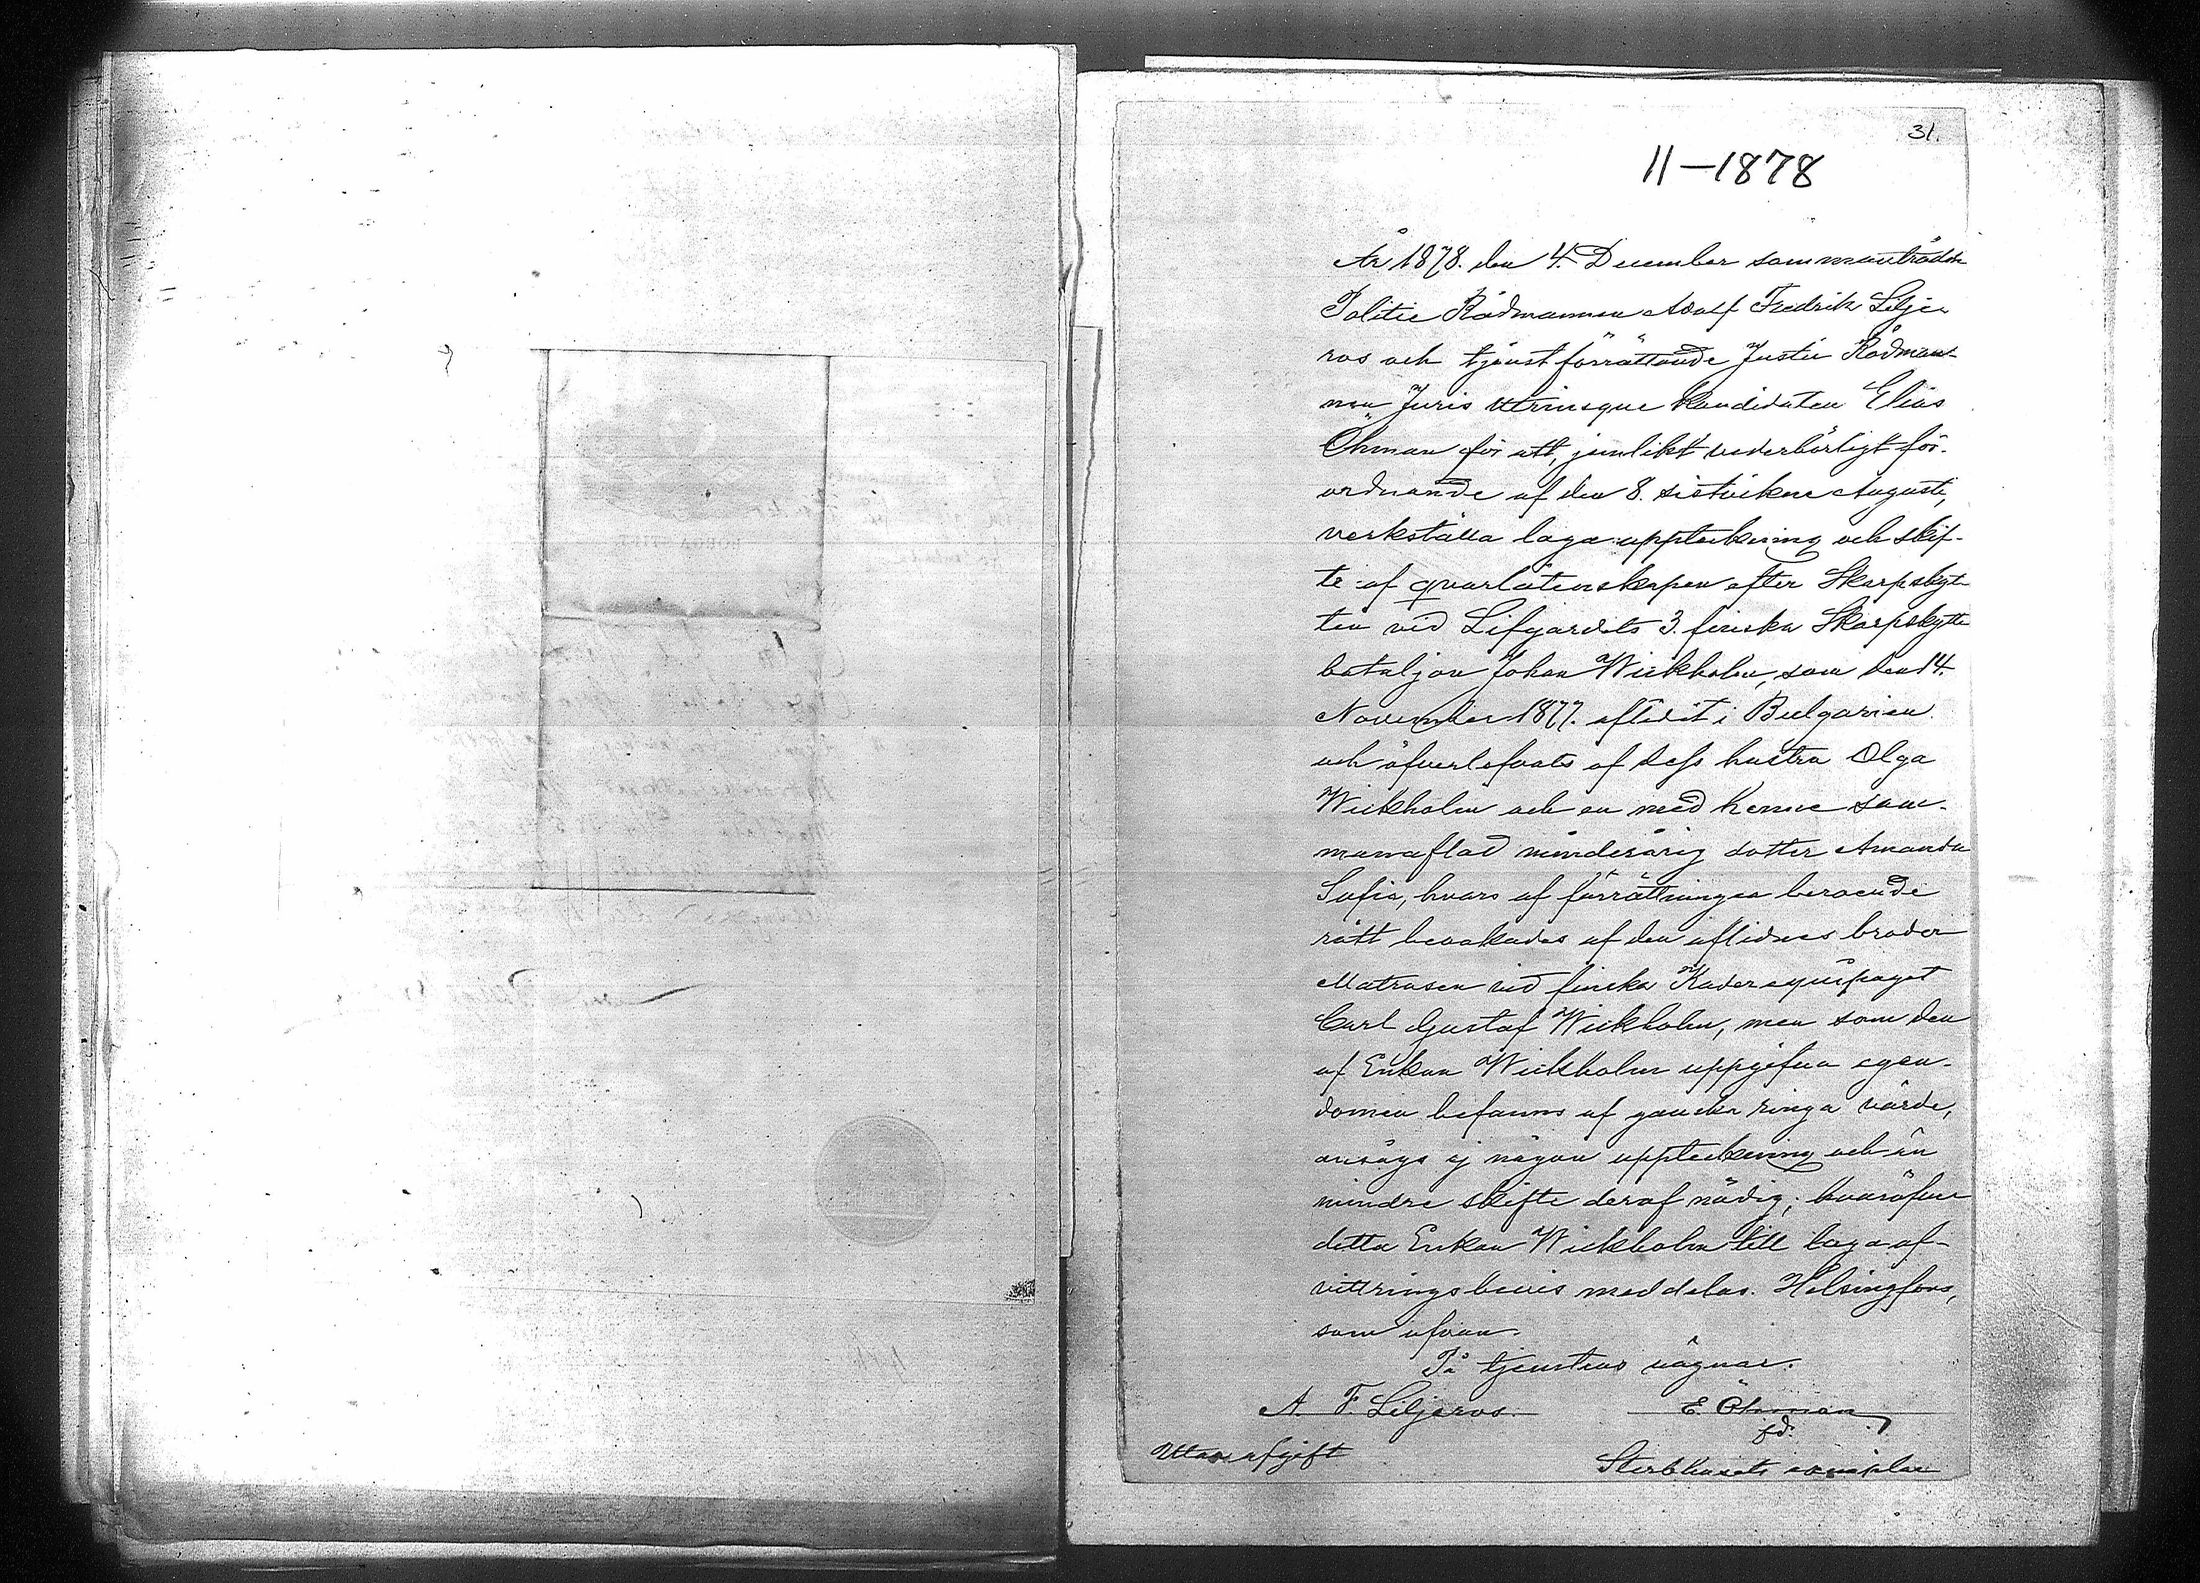 31.
11–1878
År 1878. den 4. December sammanträdde
Politie Rådmannen Adolf Fredrik Lilje-
ros och tjenstförrättande Justitie Rådman-
nen Juris Utriusque Kandidaten Elias
Öhman för att, jemlikt vederbörligt för-
ordnande af den 8. sistvikne Augusti,
verkställa laga uppteckning och skif-
te af qvarlåtenskapen efter Skarpskyt-
ten vid Lifgardets 3. finska Skarpskytte
bataljon Johan Wickholm, som den 14.
November 1877. aflidit i Bulgarien
och öfverlefvats af dess hustru Olga
Wickholm och en med henne sam-
manaflad minderårig dotter Amanda
Sofia, hvars af förrättningen beroende
rätt bevakades af den aflidnes broder
Matrosen vid finska Kaderequipaget
Carl Gustaf Wickholm, men som den
af Enkan Wickholm uppgifna egen-
domen befanns af ganska ringa värde,
ansågs ej någon uppteckning och än
mindre skifte deraf nödig; hvaröfver
detta Enkan Wickholm till laga af-
vittringsbevis meddelas. Helsingfors,
som ofvan.
På tjenstens vägnar.
A. F. Liljeros. E. Öhman
fd.
Utan afgift
Sterbhusets exemplar